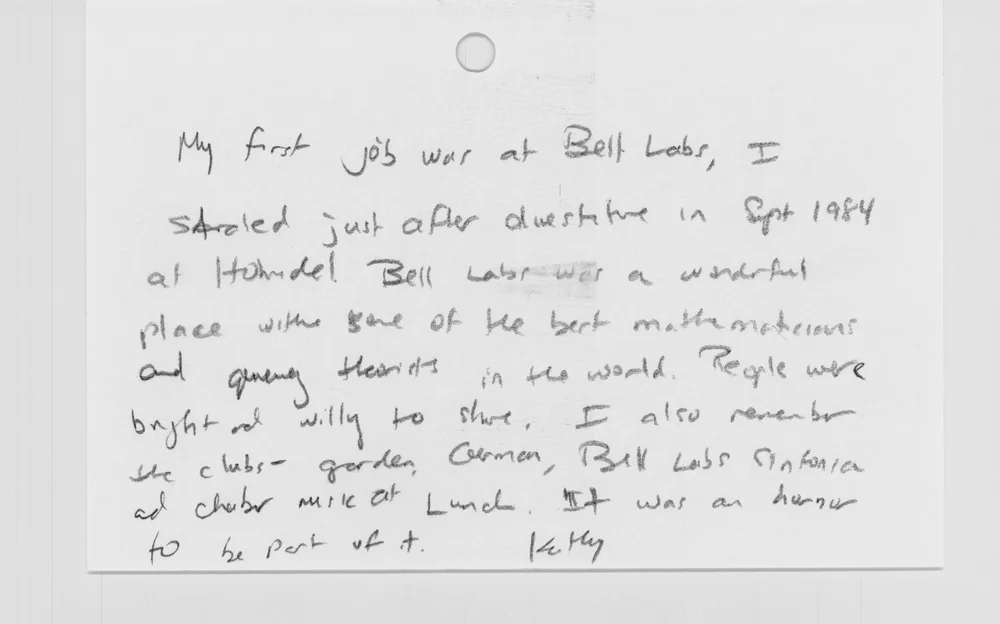 My first job was at Bell Labs, I
started just after divestiture in Sept 1984
at Holmdel. Bell Labs was a wonderful
place with some of the best mathematicians
and queueing theorists in the world. People were
bright and willing to share. I also remember
the clubs - garden, German, Bell Labs Sinfonia
and chamber music at Lunch. It was an honor
to be part of it. Kathy